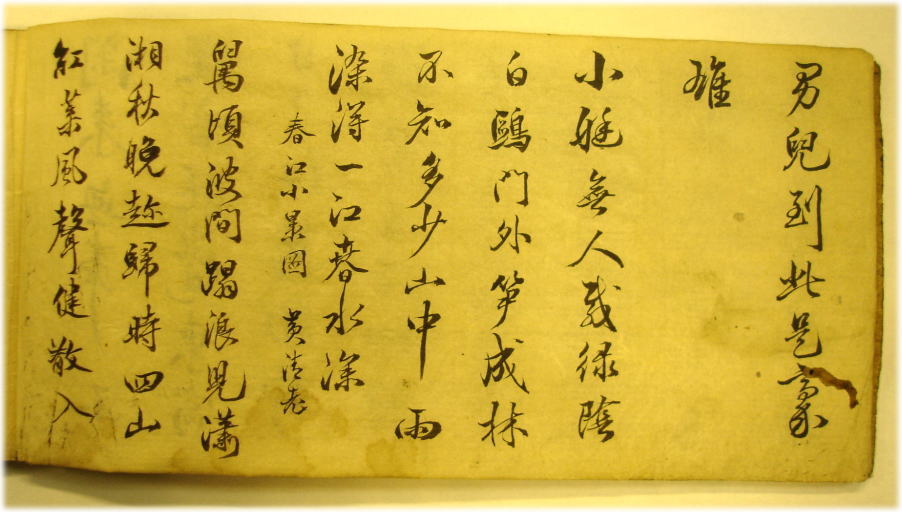 男兒到此是豪
雄
小艇無人載綠陰
白鷗門外笋成林
不知多少山中雨
染得一江春水深
春江小景圖 黄清老
萬頃波間蹋浪児瀟
湘秋晚趂歸時四山
紅葉風聲健散入